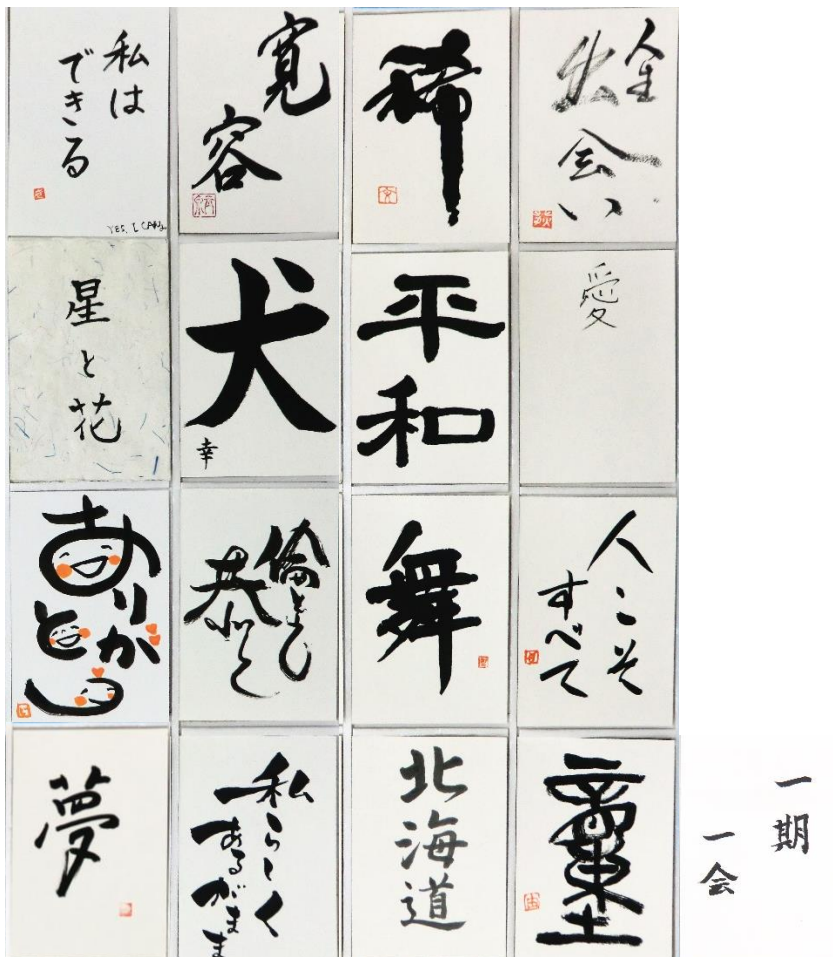 私は
できる
YES, I CAN.
寛
容
稀
人生
出会い
星と花
犬
幸
平
和
愛
ありがとう
舞
人こそ
すべて
夢
私らしく
あるがまま
北海道
一期
一会